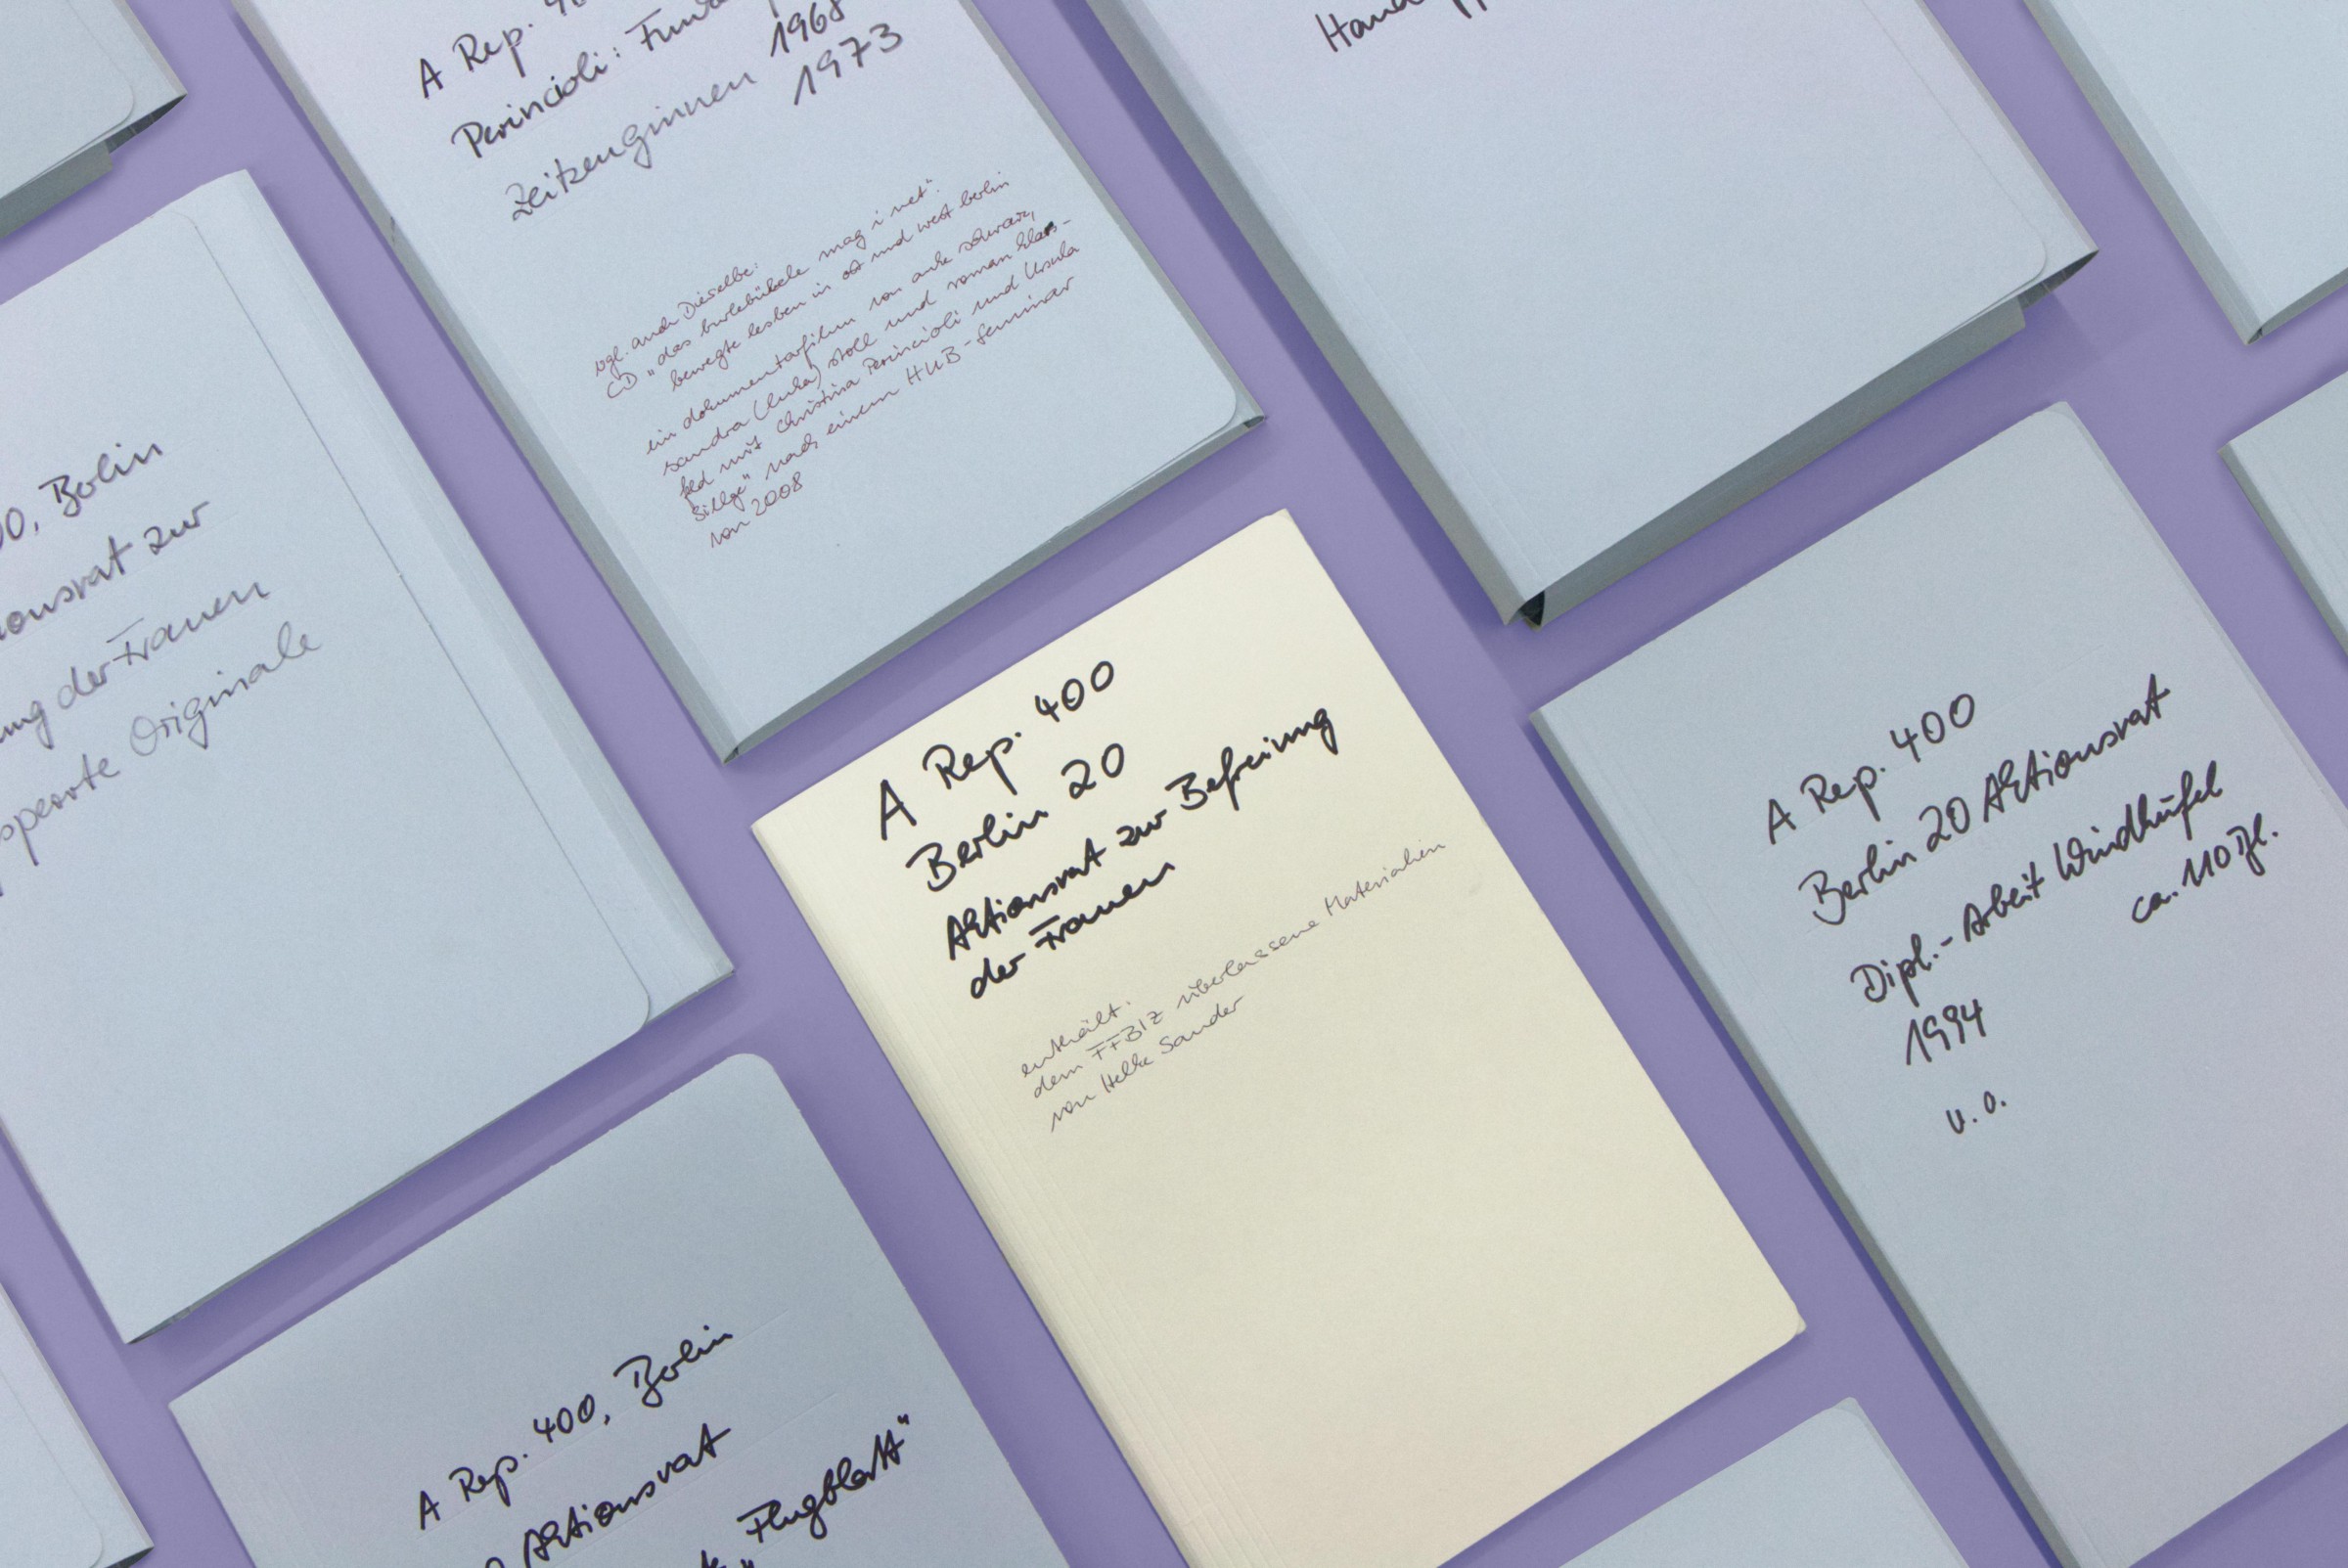 A Rep. 40
Perincioli:
Zeitzeuginnen 1968
1973
vgl. auch Dieselbe:
CD "das burlebübele mag i net".
bewegte lesben in ost und west berlin
ein dokumentarfilm von anke schwarz,
sandra (luka) stoll und roman klars-
feld mit Christina Perincioli und Ursula
Sillge" nach einem HUB-Seminar
von 2008
00, Berlin
ionsrat zur
ung der Frauen
Originale
A Rep. 400
Berlin 20
Aktionsrat zur Befreiung
der Frauen
enthält:
dem FFBIZ überlassene Materialien
von Helke Sander
A Rep. 400
Berlin 20 Aktionsrat
Dipl.-Arbeit Windhüfel
ca. 110 Bl.
1994
u. a.
A Rep. 400, Berlin
Aktionsrat
Flugblatt"